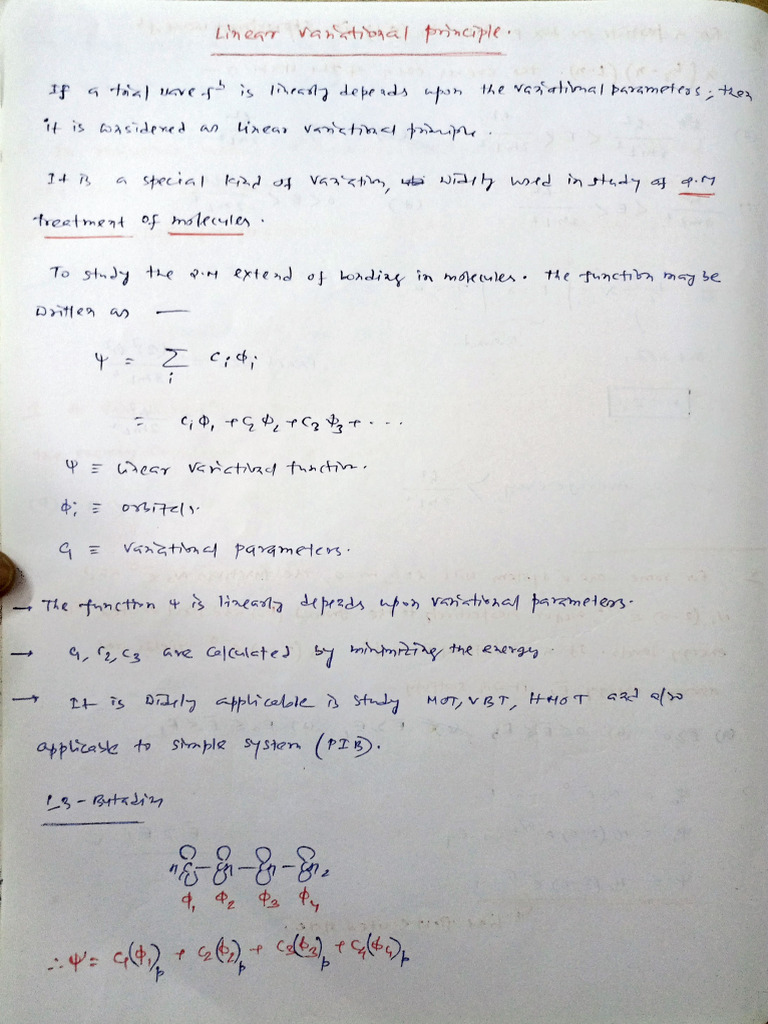 Linear variational principle.
If a trial wave fⁿ is linearly depends upon the variational parameters, then
it is considered as linear variational principle.
It is a special kind of variation, widely used in study of Q.M
treatment of molecules.
To study the Q.M extend of bonding in molecules. The function may be
written as —
Ψ = Σ_i c_i φ_i
= c_1 φ_1 + c_2 φ_2 + c_3 φ_3 + ...
Ψ ≡ linear variational function.
φ_i ≡ orbitals.
c_i ≡ variational parameters.
→ The function Ψ is linearly depends upon variational parameters.
→ c_1, c_2, c_3 are calculated by minimizing the energy.
→ It is widely applicable is study MOT, VBT, HMOT and also
applicable to simple system (PIB).
1,3-Butadiene
φ_1 φ_2 φ_3 φ_4
∴ Ψ = c_1(φ_1)_p + c_2(φ_2)_p + c_3(φ_3)_p + c_4(φ_4)_p